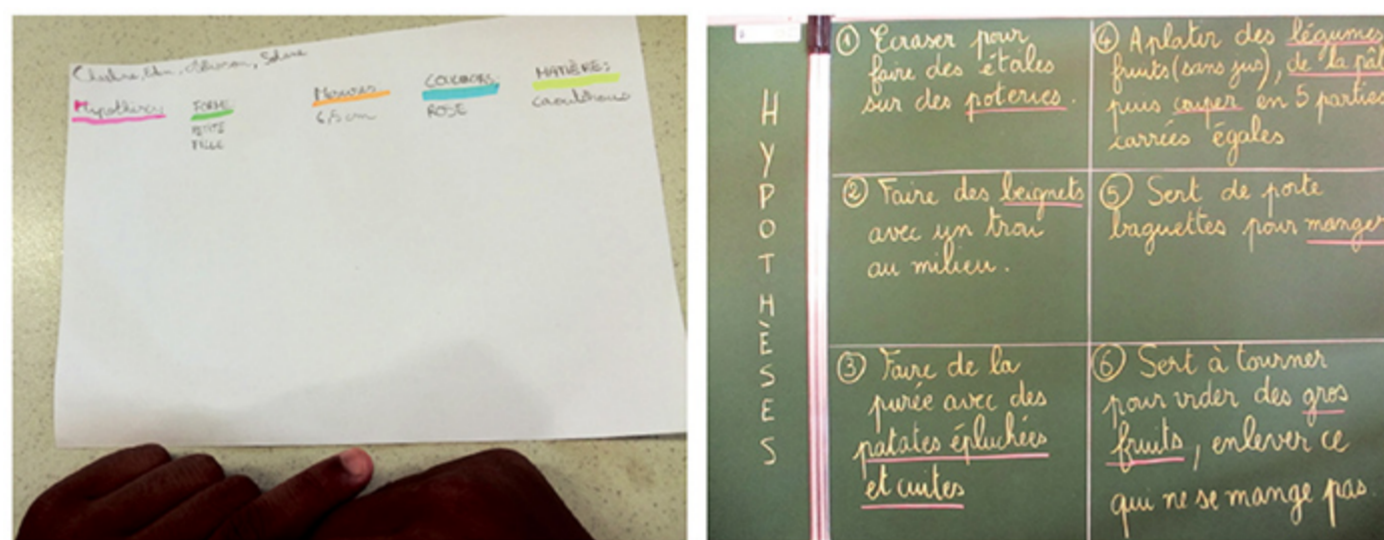 Hypothèses
FORME
PETITE
FILLE
Mesures
6,5 cm
COULEURS:
ROSE
MATIÈRE:
caoutchouc
HYPOTHÈSES
① Ecraser pour
faire des étales
sur des poteries.
② Faire des beignets
avec un trou
au milieu.
③ Faire de la
purée avec des
patates épluchées
et cuites
④ Aplatir des légumes
fruits (sans jus), de la pât
puis couper en 5 parties
carrées égales
⑤ Sert de porte
baguettes pour manger
⑥ Sert à tourner
pour vider des gros
fruits, enlever ce
qui ne se mange pas.